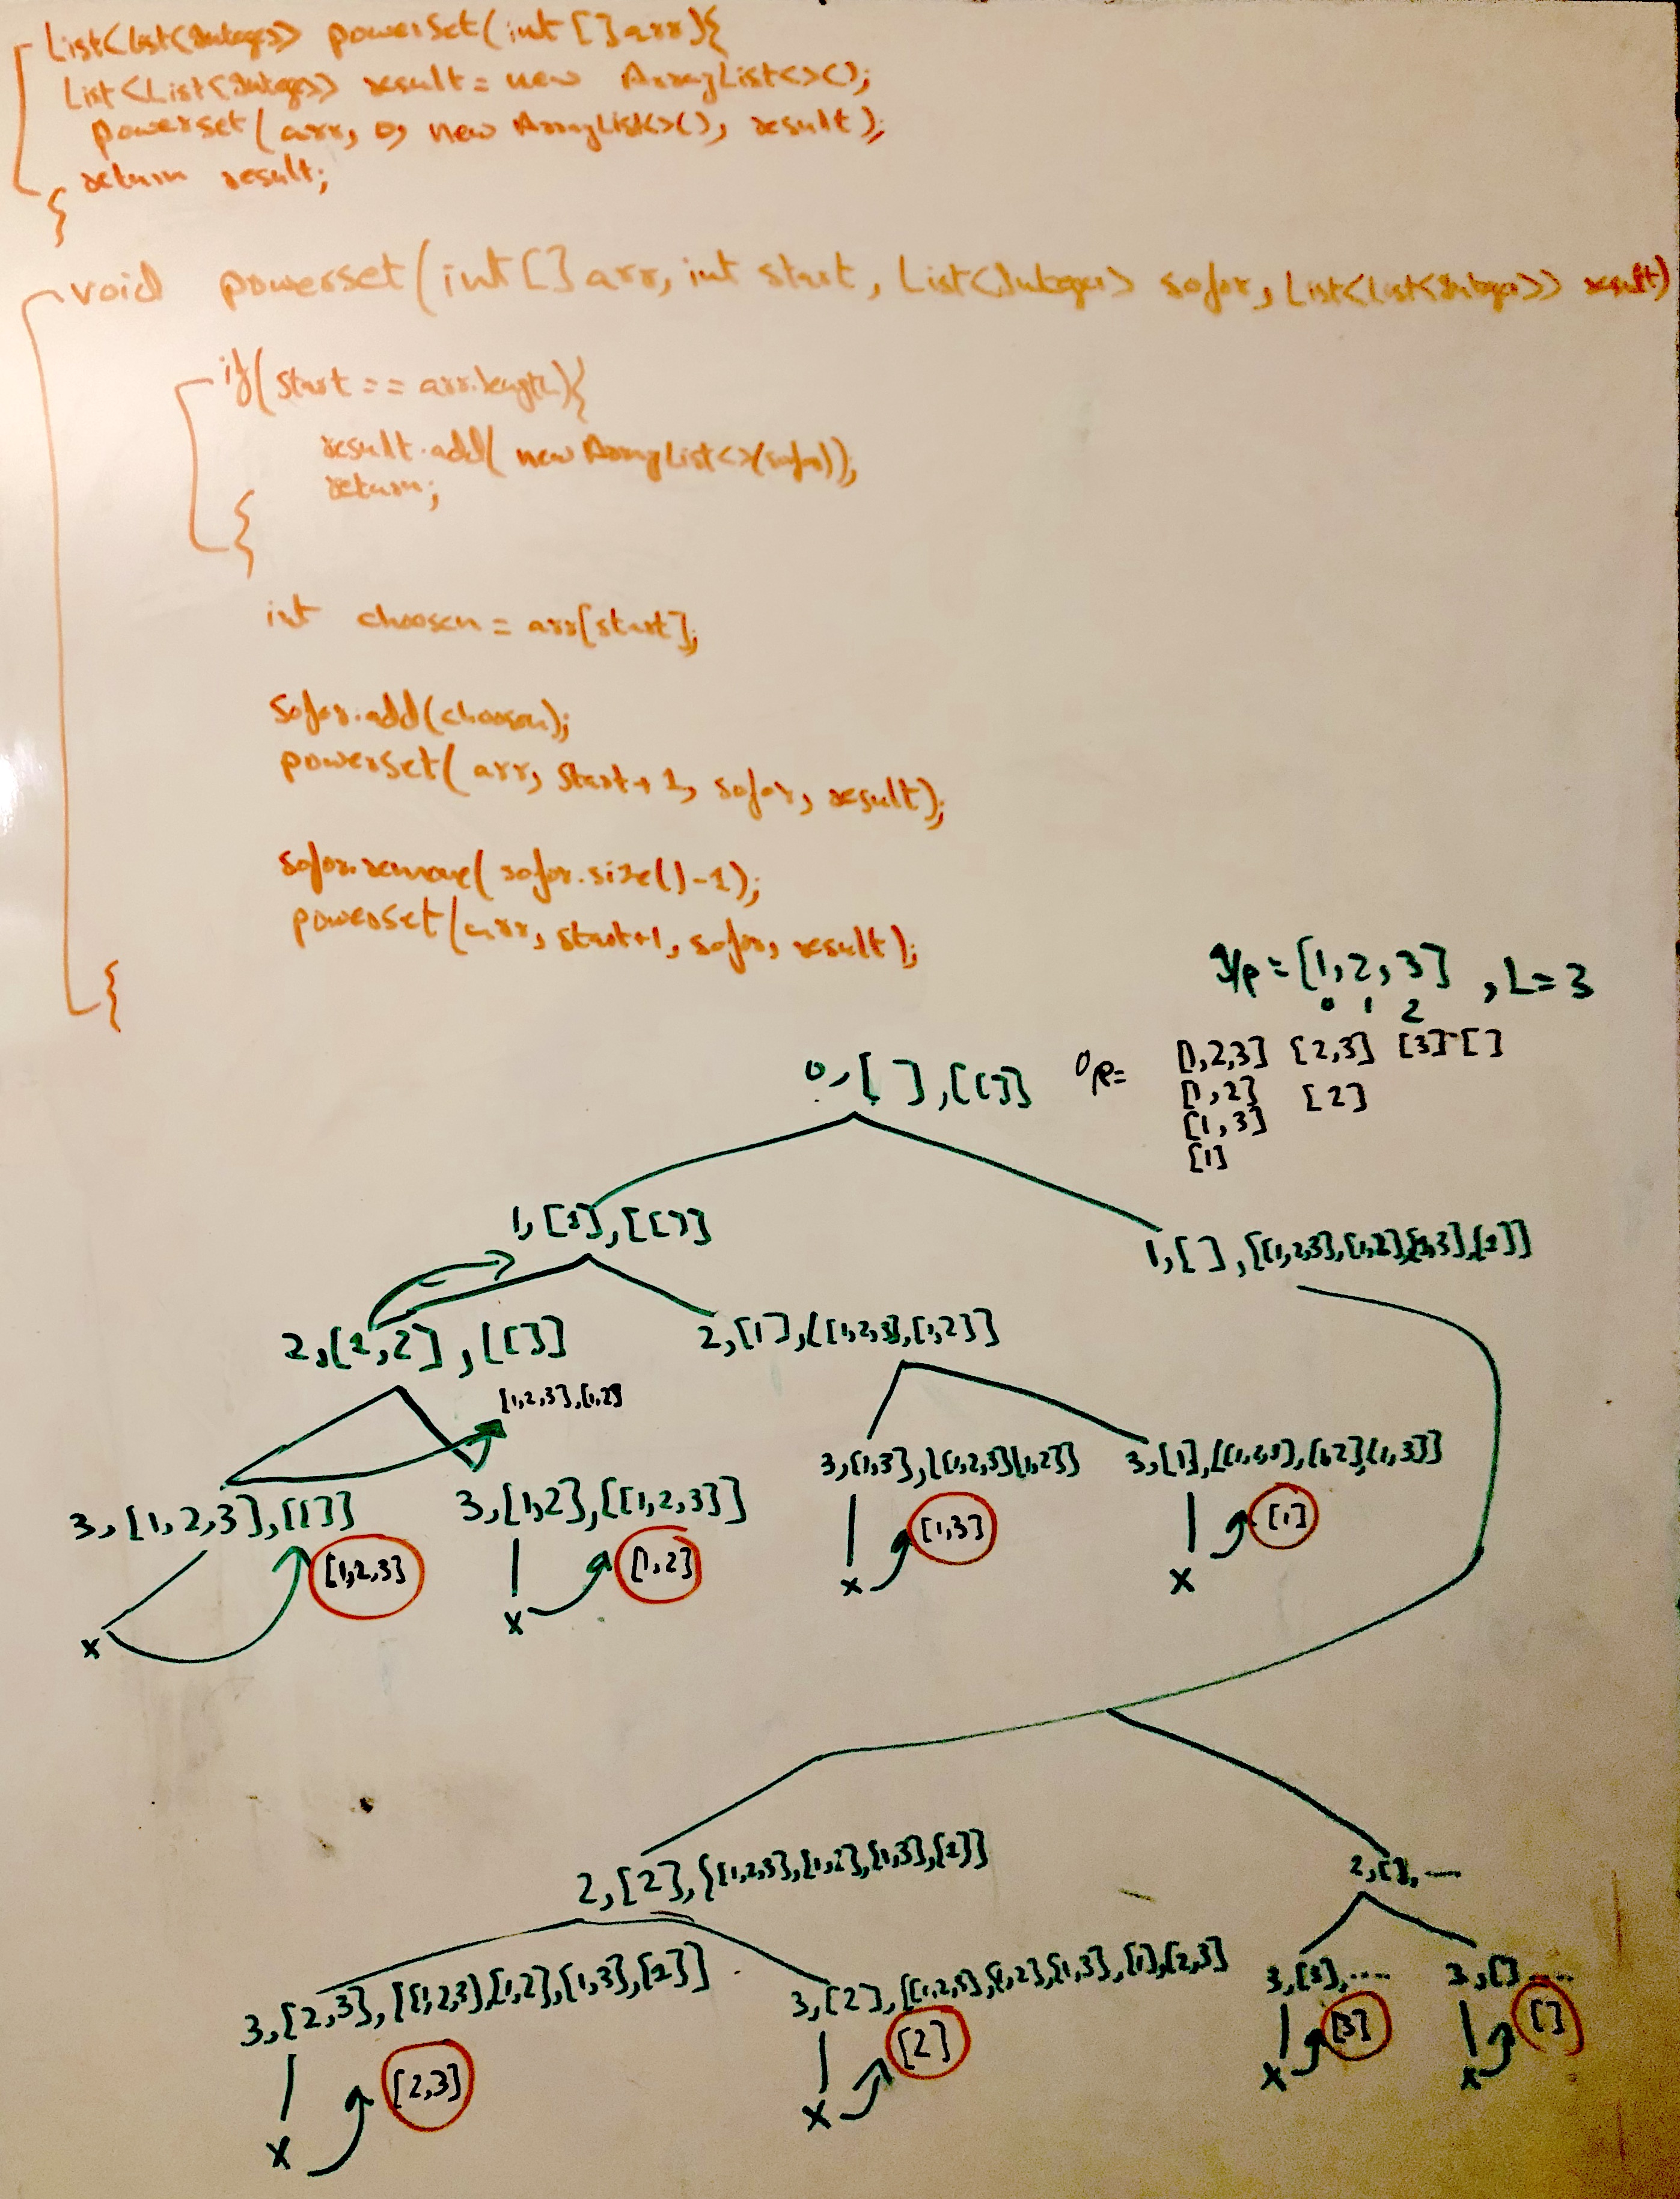 List<List<Integer>> powerSet(int []arr){
List<List<Integer>> result = new ArrayList<>();
powerset(arr, 0, new ArrayList<>(), result);
return result;
}
void powerset(int[] arr, int start, List<Integer> sofar, List<List<Integer>> result)
if(start == arr.length){
result.add(new ArrayList<>(sofar));
return;
}
int choosen = arr[start];
sofar.add(choosen);
powerset(arr, start+1, sofar, result);
sofar.remove(sofar.size()-1);
powerset(arr, start+1, sofar, result);
}
I/p = [1,2,3], L=3
0 1 2
O/P= [1,2,3] [2,3] [3] []
[1,2] [2]
[1,3]
[1]
0,[ ],[[]]
1,[1],[[]]
1,[ ],[[1,2,3],[1,2],[1,3],[1]]
2,[1,2],[[]]
2,[1],[[1,2,3],[1,2]]
[1,2,3],[1,2]
3,[1,2,3],[[]]
3,[1,2],[[1,2,3]]
3,[1,3],[[1,2,3][1,2]]
3,[1],[[1,2,3],[1,2],[1,3]]
[1,2,3]
[1,2]
[1,3]
[1]
x
x
x
x
2,[2],[[1,2,3],[1,2],[1,3],[1]]
2,[],....
3,[2,3],[[1,2,3],[1,2],[1,3],[1]]
3,[2],[[1,2,3],[1,2],[1,3],[1],[2,3]
3,[3],....
3,[]....
[2,3]
[2]
[3]
[]
x
x
x
x